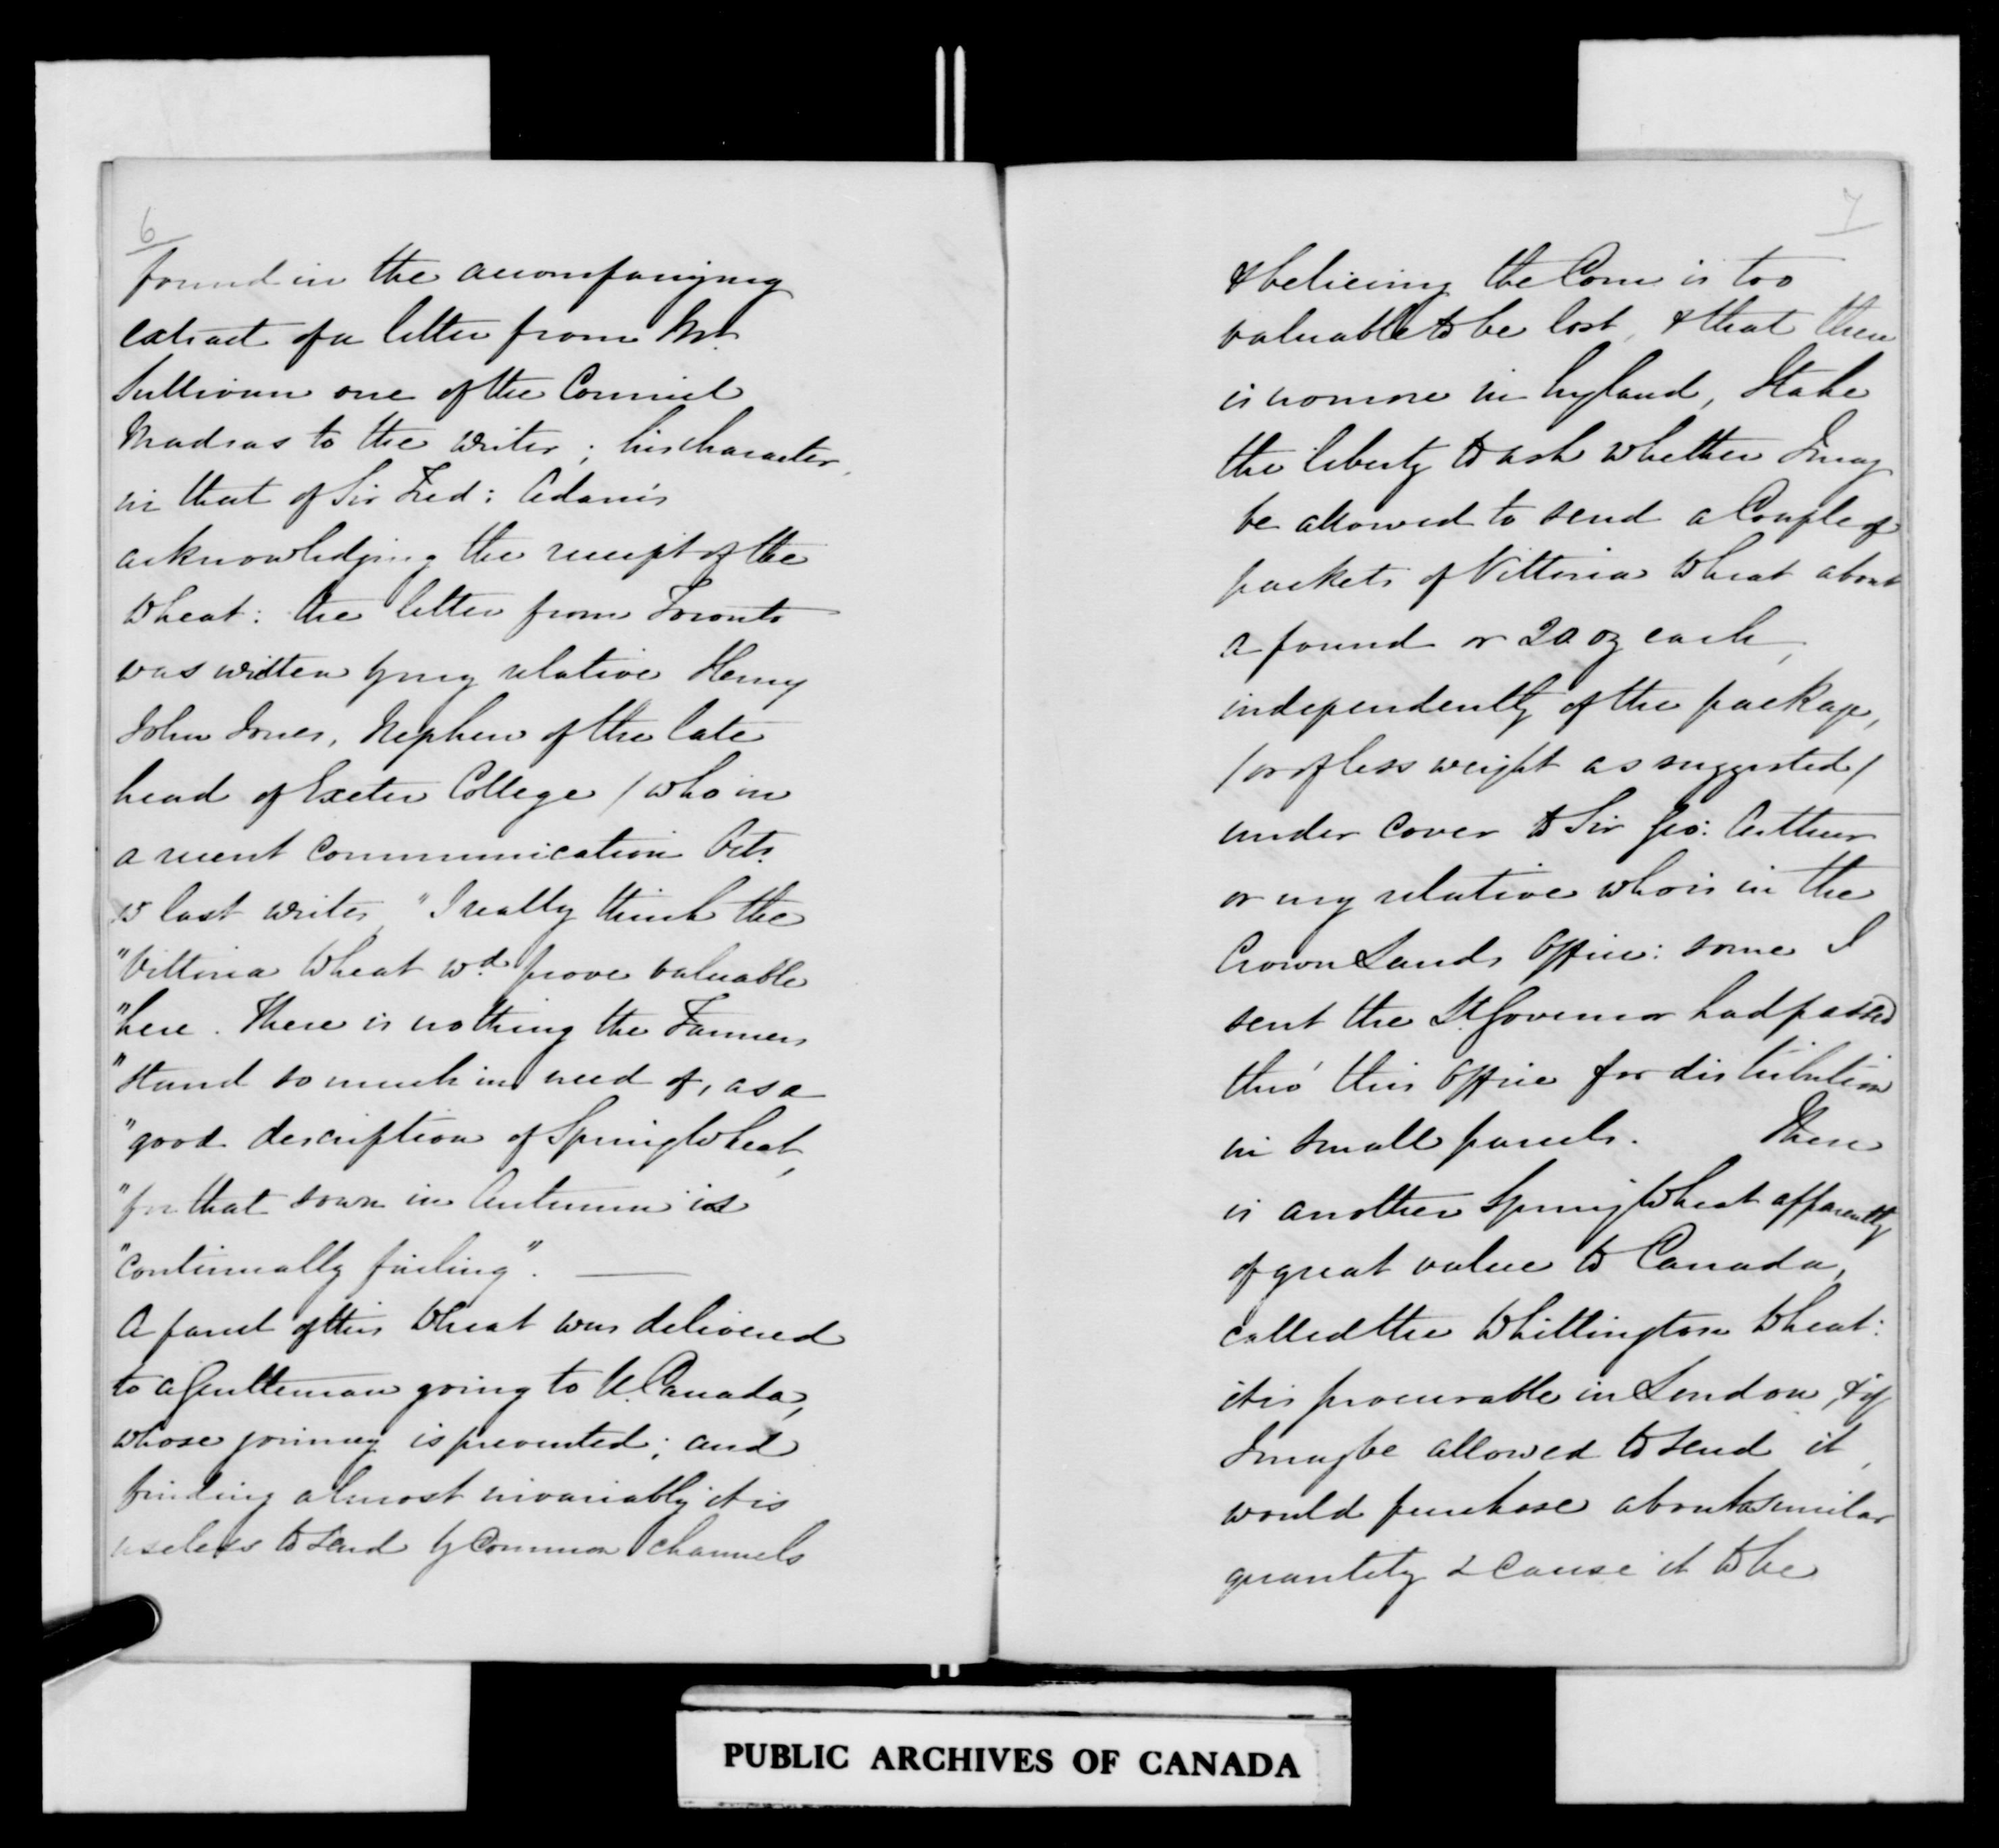 6
found in the accompanying
extract of a letter from Mr.
Sullivan one of the Council
Madras to the writer; his character
in that of Sir Fred: Adam's
acknowledging the receipt of the
Wheat: the letter from Toronto
was written by my relative Henry
John Jones, Nephew of the late
head of Exeter College / who in
a recent communication Octr.
15 last writes, "I really think the
"Vittoria Wheat wd. prove valuable
"here. There is nothing the Farmers
"stand so much in need of, as a
"good description of Spring Wheat,
"for that sown in Autumn is
"continually failing".
A parcel of this Wheat was delivered
to a Gentleman going to U. Canada,
whose journey is prevented; and
finding almost invariably it is
useless to send by Common Channels
7
& believing the Corn is too
valuable to be lost, & that there
is no more in England, I take
the liberty to ask whether I may
be allowed to send a Couple of
packets of Vittoria Wheat about
a pound or 20 oz each,
independently of the package,
/ or of less weight as suggested /
under cover to Sir Geo: Arthur
or my relative who is in the
Crown Lands Office: some I
sent the Lt. Governor had passed
thro' this Office for distribution
in small parcels. There
is another Spring Wheat apparently
of great value to Canada,
called the Whittington Wheat:
it is procurable in London, & if
I may be allowed to send it,
would purchase about a similar
quantity & cause it to be
PUBLIC ARCHIVES OF CANADA